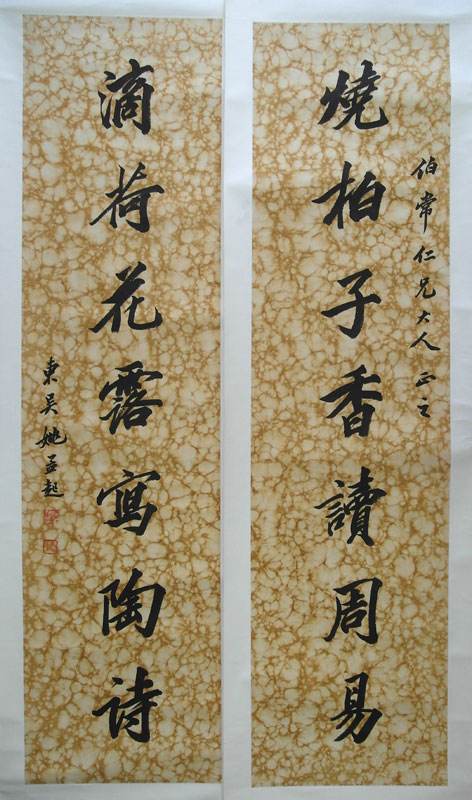 伯常仁兄大人正之
燒柏子香讀周易
滴荷花露寫陶詩
東吳姚孟起